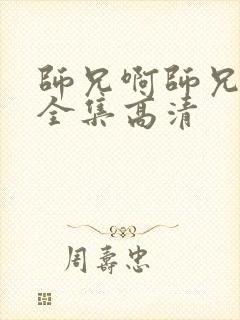 師兄啊師兄
全集高清
周壽忠